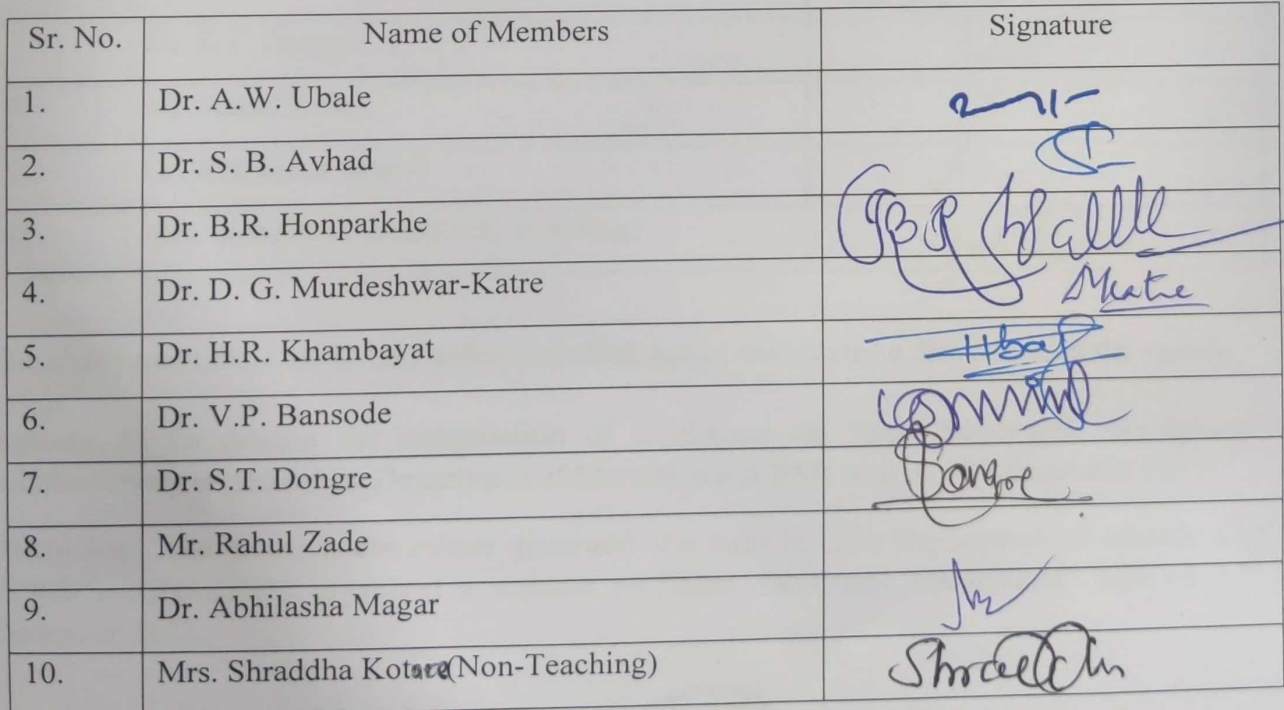 Sr. No. Name of Members Signature
1. Dr. A.W. Ubale
2. Dr. S. B. Avhad
3. Dr. B.R. Honparkhe
4. Dr. D. G. Murdeshwar-Katre Katre
5. Dr. H.R. Khambayat
6. Dr. V.P. Bansode
7. Dr. S.T. Dongre Dongre
8. Mr. Rahul Zade
9. Dr. Abhilasha Magar
10. Mrs. Shraddha (Non-Teaching) Shraddha